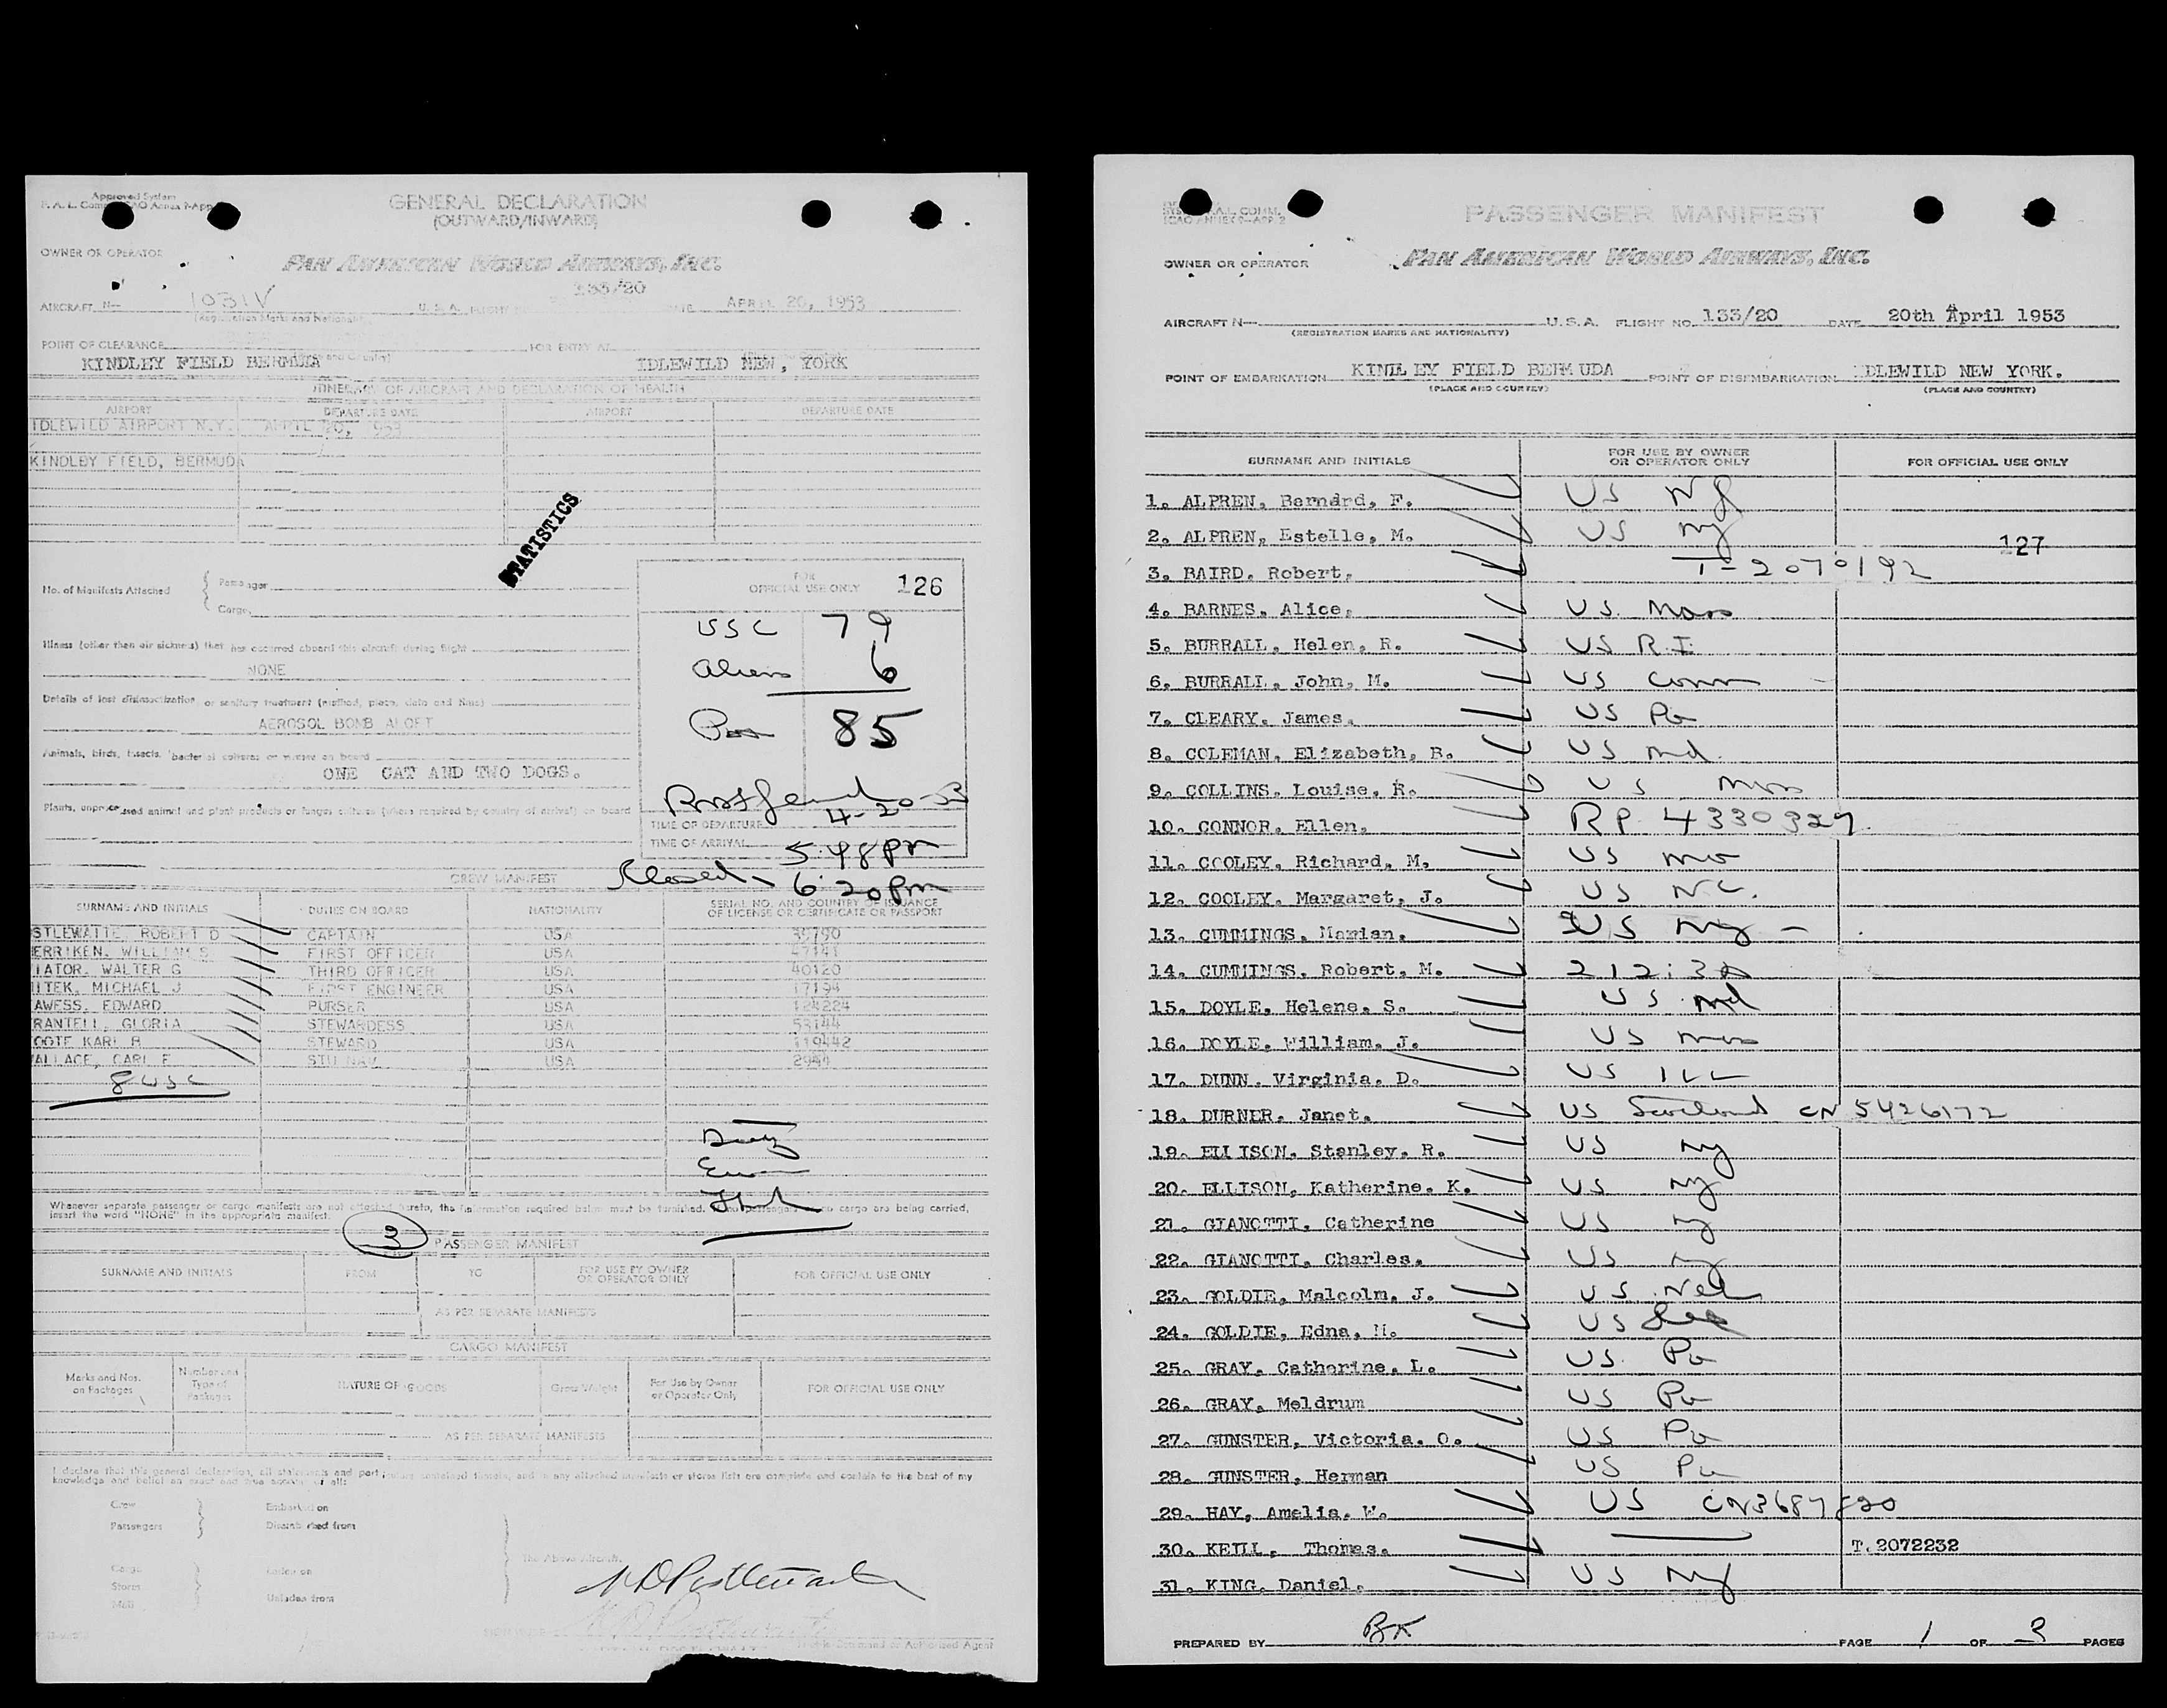 Approved System
GENERAL DECLARATION
(OUTWARD/INWARD)
OWNER OR OPERATOR
PAN AMERICAN WORLD AIRWAYS, INC.
133/20
AIRCRAFT N— 1031V U. S. A. APRIL 20, 1953
POINT OF CLEARANCE FOR ENTRY AT
KINDLEY FIELD BERMUDA IDLEWILD NEW, YORK
ITINERARY OF AIRCRAFT AND DECLARATION OF HEALTH
AIRPORT DEPARTURE DATE AIRPORT DEPARTURE DATE
IDLEWILD AIRPORT N.Y. APRIL 20, 1953
KINDLEY FIELD, BERMUDA
STATISTICS
No. of Manifests Attached
Passenger
Cargo
FOR
OFFICIAL USE ONLY 126
USC 79
Aliens 6
85
4-20-53
TIME OF DEPARTURE
TIME OF ARRIVAL 5:48 pm
Closed 6:20 pm
Illness (other than air sickness) that has occurred aboard this aircraft during flight
NONE
Details of last disinsectization or sanitary treatment (method, place, date and time)
AEROSOL BOMB ALOFT
Animals, birds, insects, bacterial cultures or viruses on board
ONE CAT AND TWO DOGS.
CREW MANIFEST
SURNAME AND INITIALS DUTIES ON BOARD NATIONALITY SERIAL NO. AND COUNTRY OF ISSUANCE
OF LICENSE OR CERTIFICATE OR PASSPORT
STLEWAITE, ROBERT D CAPTAIN USA
ERRIKEN, WILLIAM S FIRST OFFICER USA
IATOR, WALTER G THIRD OFFICER USA 40120
ITEK, MICHAEL J FIRST ENGINEER USA 17194
AWESS, EDWARD PURSER USA 124224
RANTELL, GLORIA STEWARDESS USA 53144
OOTE KARL B STEWARD USA 110442
ALLACE, CARL F USA
8 USC
Whenever separate passenger or cargo manifests are not attached hereto, the information required below must be furnished.
insert the word "NONE" in the appropriate manifest.
3
PASSENGER MANIFEST
SURNAME AND INITIALS FROM TO FOR USE BY OWNER
OR OPERATOR ONLY FOR OFFICIAL USE ONLY
AS PER SEPARATE MANIFESTS
CARGO MANIFEST
Marks and Nos.
on Packages Number and
Type of
Packages NATURE OF GOODS Gross Weight For Use by Owner
or Operator Only FOR OFFICIAL USE ONLY
AS PER SEPARATE MANIFESTS
Crew Embarked on
Passengers
Cargo
Stores
Mail
The Above Aircraft
PASSENGER MANIFEST
OWNER OR OPERATOR PAN AMERICAN WORLD AIRWAYS, INC.
AIRCRAFT N— U. S. A. FLIGHT NO. 133/20 DATE 20th April 1953
(REGISTRATION MARKS AND NATIONALITY)
POINT OF EMBARKATION KINDLEY FIELD BERMUDA POINT OF DISEMBARKATION IDLEWILD NEW YORK.
(PLACE AND COUNTRY) (PLACE AND COUNTRY)
SURNAME AND INITIALS FOR USE BY OWNER
OR OPERATOR ONLY FOR OFFICIAL USE ONLY
1. ALPREN, Barnard, F. US NY
2. ALPREN, Estelle, M. US NY
127
3. BAIRD. Robert. T-2070192
4. BARNES, Alice, US Mass
5. BURRALL, Helen, R. US R.I.
6. BURRALL, John, M. US Conn
7. CLEARY, James. US Pa
8. COLEMAN, Elizabeth, B. US Md.
9. COLLINS. Louise, R. US Mass
10. CONNOR, Ellen, RP 4330327
11. COOLEY, Richard, M. US Mo
12. COOLEY, Margaret, J. US NC.
13. CUMMINGS, Marian. US NY
14. CUMMINGS, Robert, M.
15. DOYLE, Helene, S. US Md
16. DOYLE, William, J. US Mass
17. DUNN. Virginia. D. US ILL
18. DURNER, Janet. US Scotland CN 5426172
19. ELLISON, Stanley, R. US NY
20. ELLISON, Katherine. K. US NY
21. GIANOTTI, Catherine US NY
22. GIANOTTI, Charles. US NY
23. GOLDIE, Malcolm, J. US
24. GOLDIE, Edna, M. US
25. GRAY, Catherine, L. US Pa
26. GRAY, Meldrum US Pa
27. GUNSTER, Victoria. O. US Pa
28. GUNSTER, Herman US Pa
29. HAY, Amelia. W. US CN3687820
30. KEILL, Thomas. T.2072232
31. KING, Daniel. US NY
PREPARED BY BK PAGE 1 OF 3 PAGES